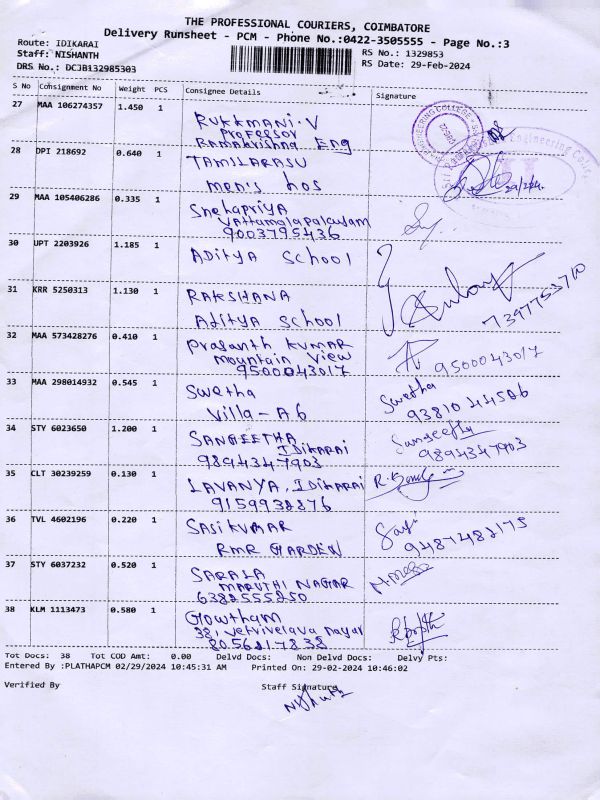 THE PROFESSIONAL COURIERS, COIMBATORE
Delivery Runsheet - PCM - Phone No.:0422-3505555 - Page No.:3
Route: IDIKARAI
RS No.: 1329853
Staff: NISHANTH
RS Date: 29-Feb-2024
DRS No.: DCJB132985303
S No Consignment No Weight PCS Consignee Details Signature
27 MAA 106274357 1.450 1
RUKKMANI.V
Professor
Ramakrishna Eng
28 DPI 218692 0.640 1
TAMILARASU
men's hos
29/2/24.
29 MAA 105406286 0.335 1
Snehapriya
Vattamalapalayam
9003795436
30 UPT 2203926 1.185 1
Aditya School
31 KRR 5250313 1.130 1
RAKSHANA
Aditya School
7397753710
32 MAA 573428276 0.410 1
Prasanth Kumar
mountain view
9500043017
9500043017
33 MAA 298014932 0.545 1
Swetha
Villa-A6
Swetha
93810 44506
34 STY 6023650 1.200 1
SANGEETHA
IDikarai
9894347903
Sangeetha
9894347903
35 CLT 30239259 0.130 1
LAVANYA, IDikarai
9159938876
36 TVL 4602196 0.220 1
SASIKUMAR
RMR GARDEN
Sasi
9487482175
37 STY 6037232 0.520 1
SARALA
MARUTHI NAGAR
6382555250
38 KLM 1113473 0.580 1
Gowtham
38, Vetrivelava nagar
8056217838
Tot Docs: 38 Tot COD Amt: 0.00 Delvd Docs: Non Delvd Docs: Delvy Pts:
Entered By :PLATHAPCM 02/29/2024 10:45:31 AM Printed On: 29-02-2024 10:46:02
Verified By Staff Signature